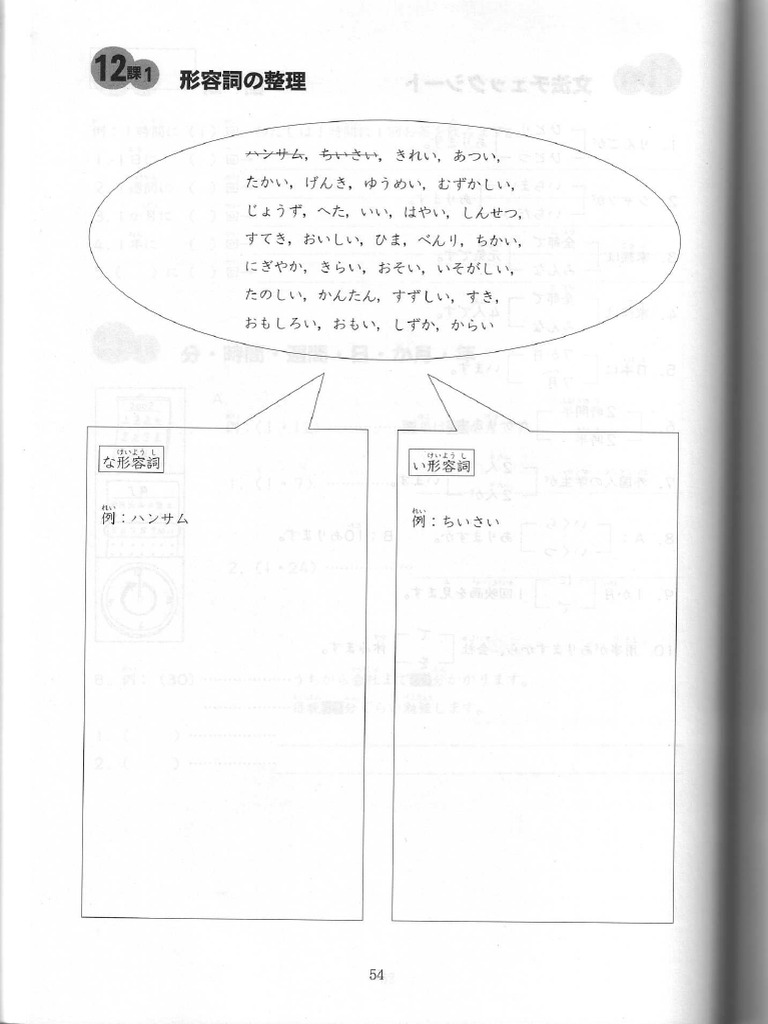 12課1 形容詞の整理
ハンサム，ちいさい，きれい，あつい，
たかい，げんき，ゆうめい，むずかしい，
じょうず，へた，いい，はやい，しんせつ，
すてき，おいしい，ひま，べんり，ちかい，
にぎやか，きらい，おそい，いそがしい，
たのしい，かんたん，すずしい，すき，
おもしろい，おもい，しずか，からい
けいようし
な形容詞
れい
例：ハンサム
けいようし
い形容詞
れい
例：ちいさい
54